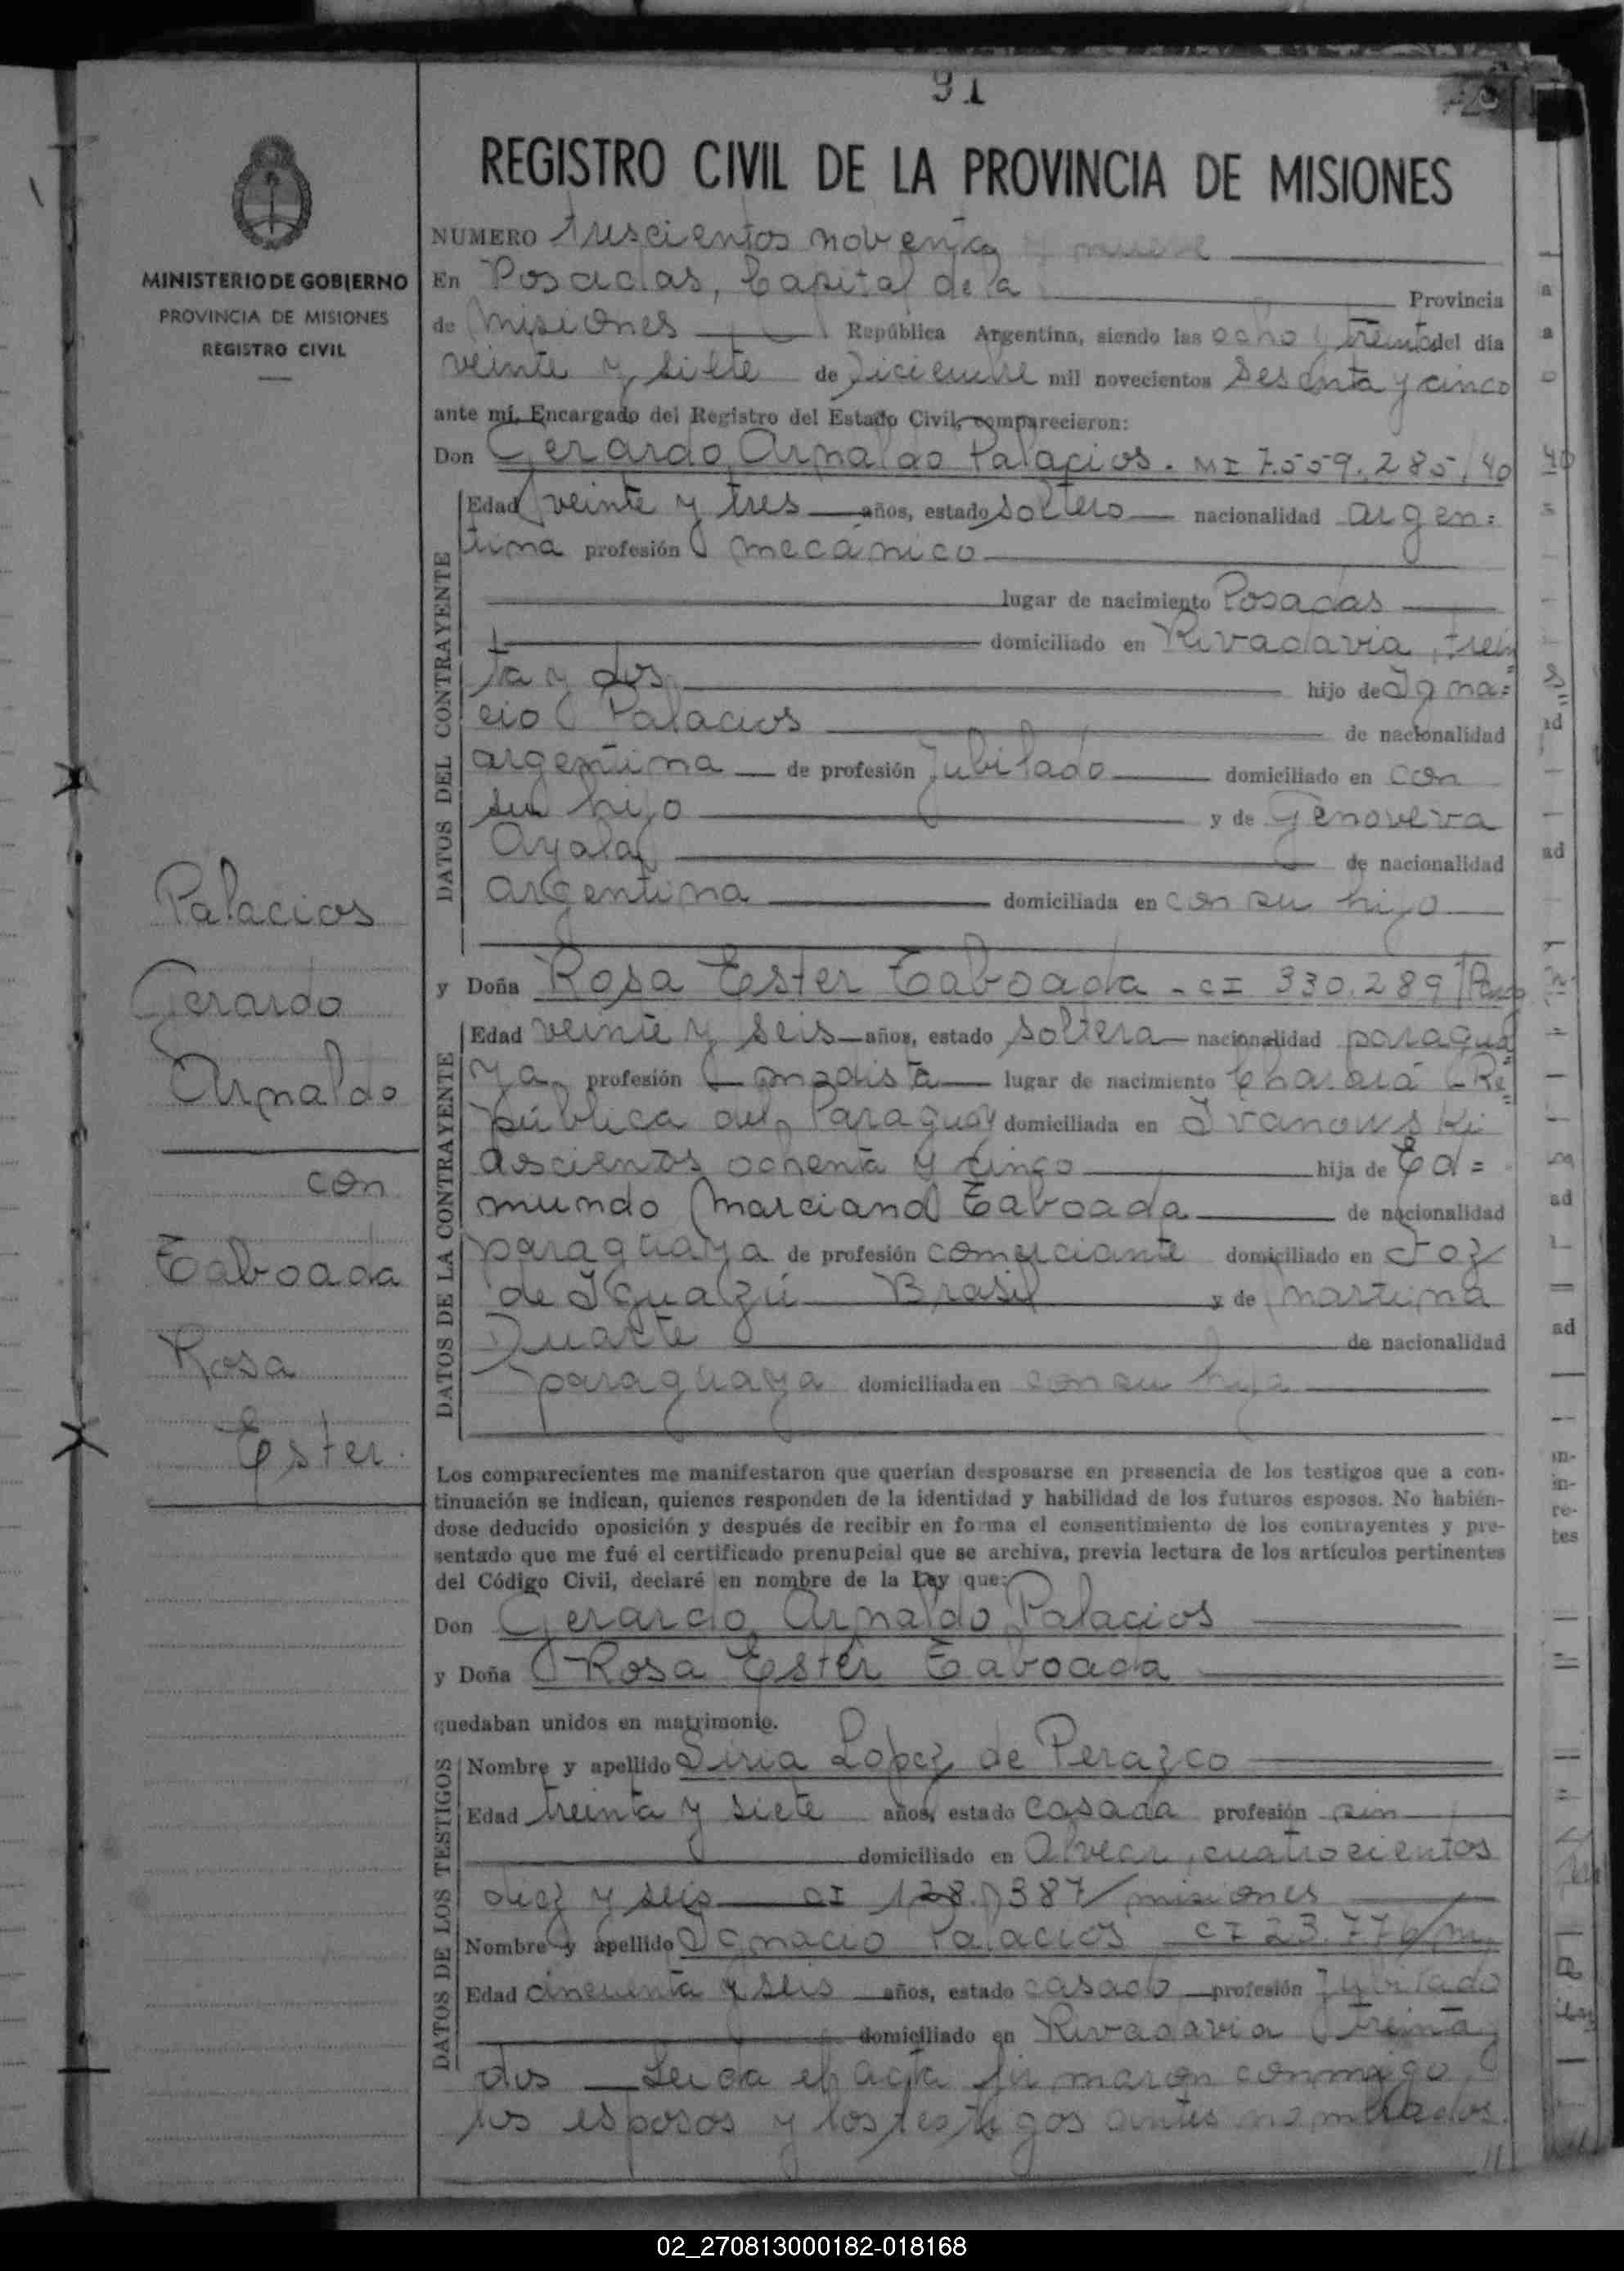 91
REGISTRO CIVIL DE LA PROVINCIA DE MISIONES
MINISTERIO DE GOBIERNO
PROVINCIA DE MISIONES
REGISTRO CIVIL
NUMERO trescientos noventa y nueve
En Posadas, Capital de la Provincia
de Misiones República Argentina, siendo las ocho y treinta del día
veinte y siete de Diciembre mil novecientos sesenta y cinco
ante mí, Encargado del Registro del Estado Civil, comparecieron:
Don Gerardo Arnaldo Palacios. MI 7.559.285/40
DATOS DEL CONTRAYENTE
Edad veinte y tres años, estado soltero nacionalidad argen=
tina profesión mecánico
lugar de nacimiento Posadas
domiciliado en Rivadavia, trein
ta y dos hijo de Igna=
cio Palacios de nacionalidad
argentina de profesión Jubilado domiciliado en con
su hijo y de Genoveva
Ayala de nacionalidad
argentina domiciliada en con su hijo
y Doña Rosa Ester Taboada - CI 330.289/
DATOS DE LA CONTRAYENTE
Edad veinte y seis años, estado soltera nacionalidad paragua
ya profesión modista lugar de nacimiento Charará - Re=
pública del Paraguay domiciliada en Ivanowski
doscientos ochenta y cinco hija de Ed=
mundo Marciano Taboada de nacionalidad
paraguaya de profesión comerciante domiciliado en Foz
de Iguazú Brasil y de Martina
Duarte de nacionalidad
paraguaya domiciliada en con su hija
Palacios
Gerardo
Arnaldo
con
Taboada
Rosa
Ester.
Los comparecientes me manifestaron que querían desposarse en presencia de los testigos que a con-
tinuación se indican, quienes responden de la identidad y habilidad de los futuros esposos. No habién-
dose deducido oposición y después de recibir en forma el consentimiento de los contrayentes y pre-
sentado que me fué el certificado prenupcial que se archiva, previa lectura de los artículos pertinentes
del Código Civil, declaré en nombre de la Ley que:
Don Gerardo Arnaldo Palacios
y Doña Rosa Ester Taboada
quedaban unidos en matrimonio.
DATOS DE LOS TESTIGOS
Nombre y apellido Siria Lopez de Perazco
Edad treinta y siete años, estado casada profesión sin
domiciliado en Alvear, cuatrocientos
diez y seis CI 128.387/misiones
Nombre y apellido Ignacio Palacios CI 23.776/m
Edad cincuenta y seis años, estado casado profesión Jubilado
domiciliado en Rivadavia treinta y
dos Leida el acta firmaron conmigo
los esposos y los testigos antes nombrados.
02_270813000182-018168